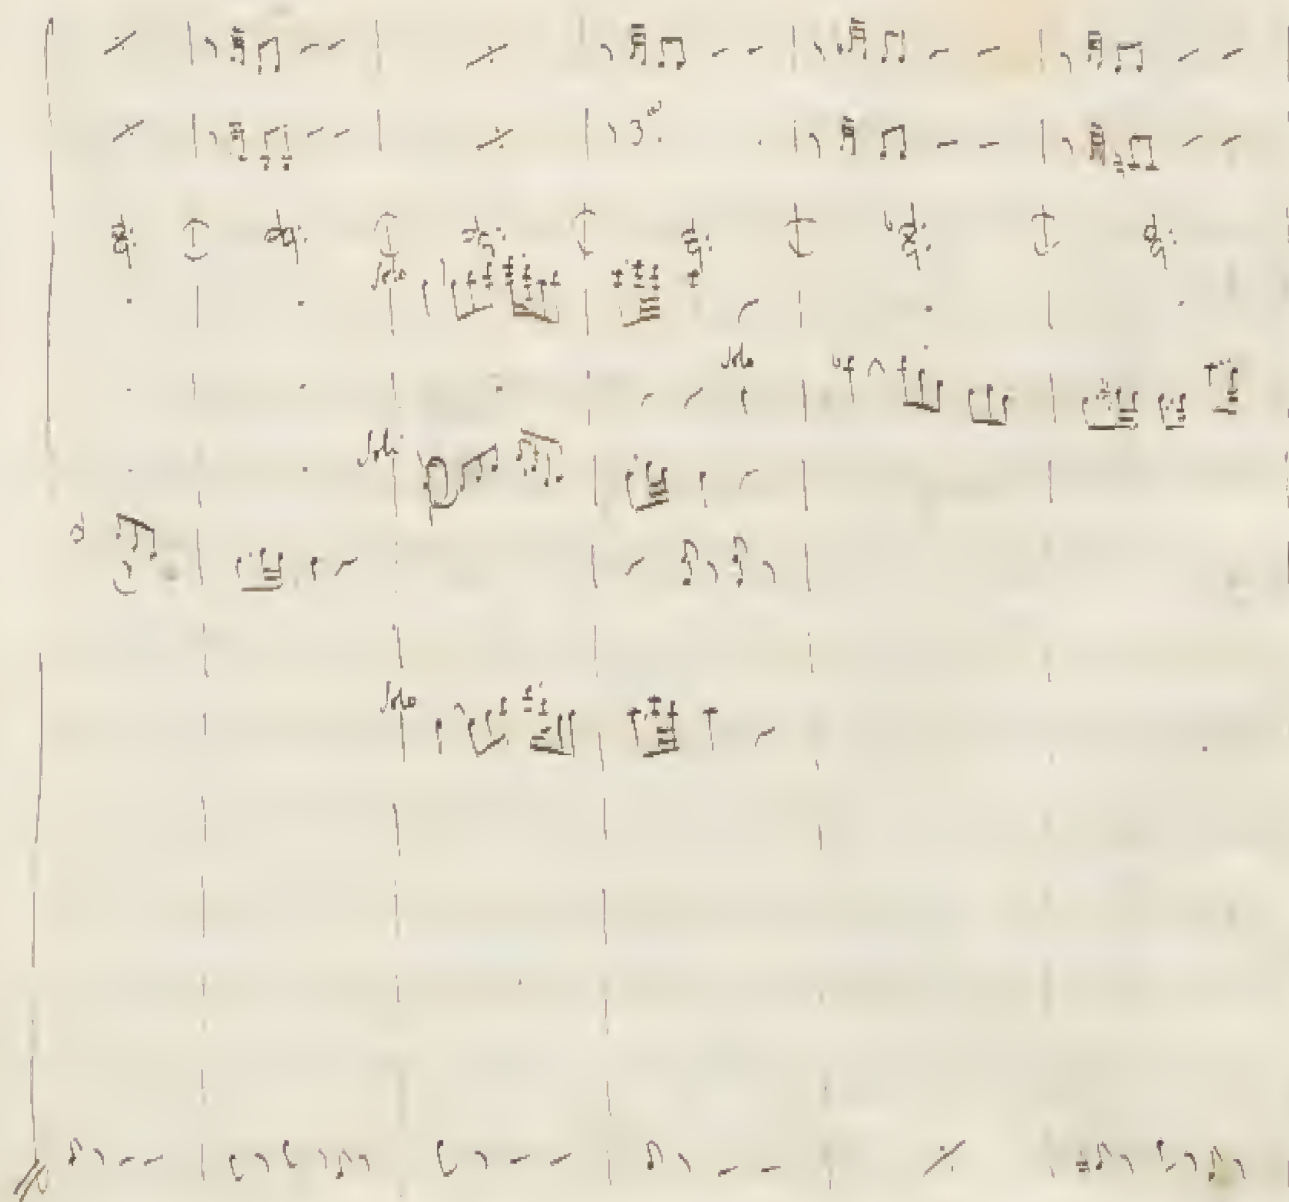 3ª
Solo
Solo
Soli
Solo